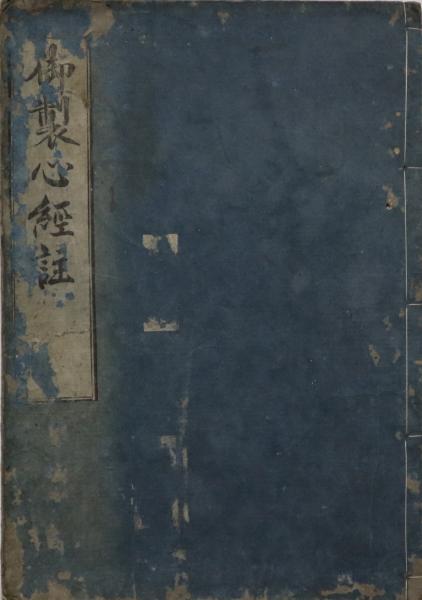 御製心經註